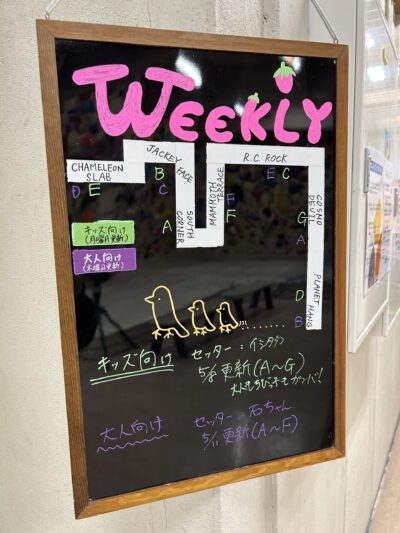 WEEKLY
JACKEY FACE
R.C. ROCK
CHAMELEON SLAB
D E
B
C
A
SOUTH CORNER
MAMMOTH TERRACE
F
F
E C
COSMO DEVIL
G
A
PLANET HANG
D
B
キッズ向け
(月曜日更新)
大人向け
(木曜日更新)
キッズ向け
セッター：イシタケ
5/8 更新(A〜G)
大人もちびっ子もガンバ!
大人向け
セッター：石ちゃん
5/11 更新(A〜F)